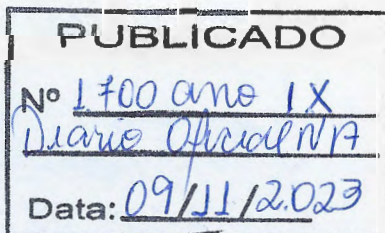 PUBLICADO
Nº 1700 ano IX
Diario Oficial NA
Data: 09/11/2.023